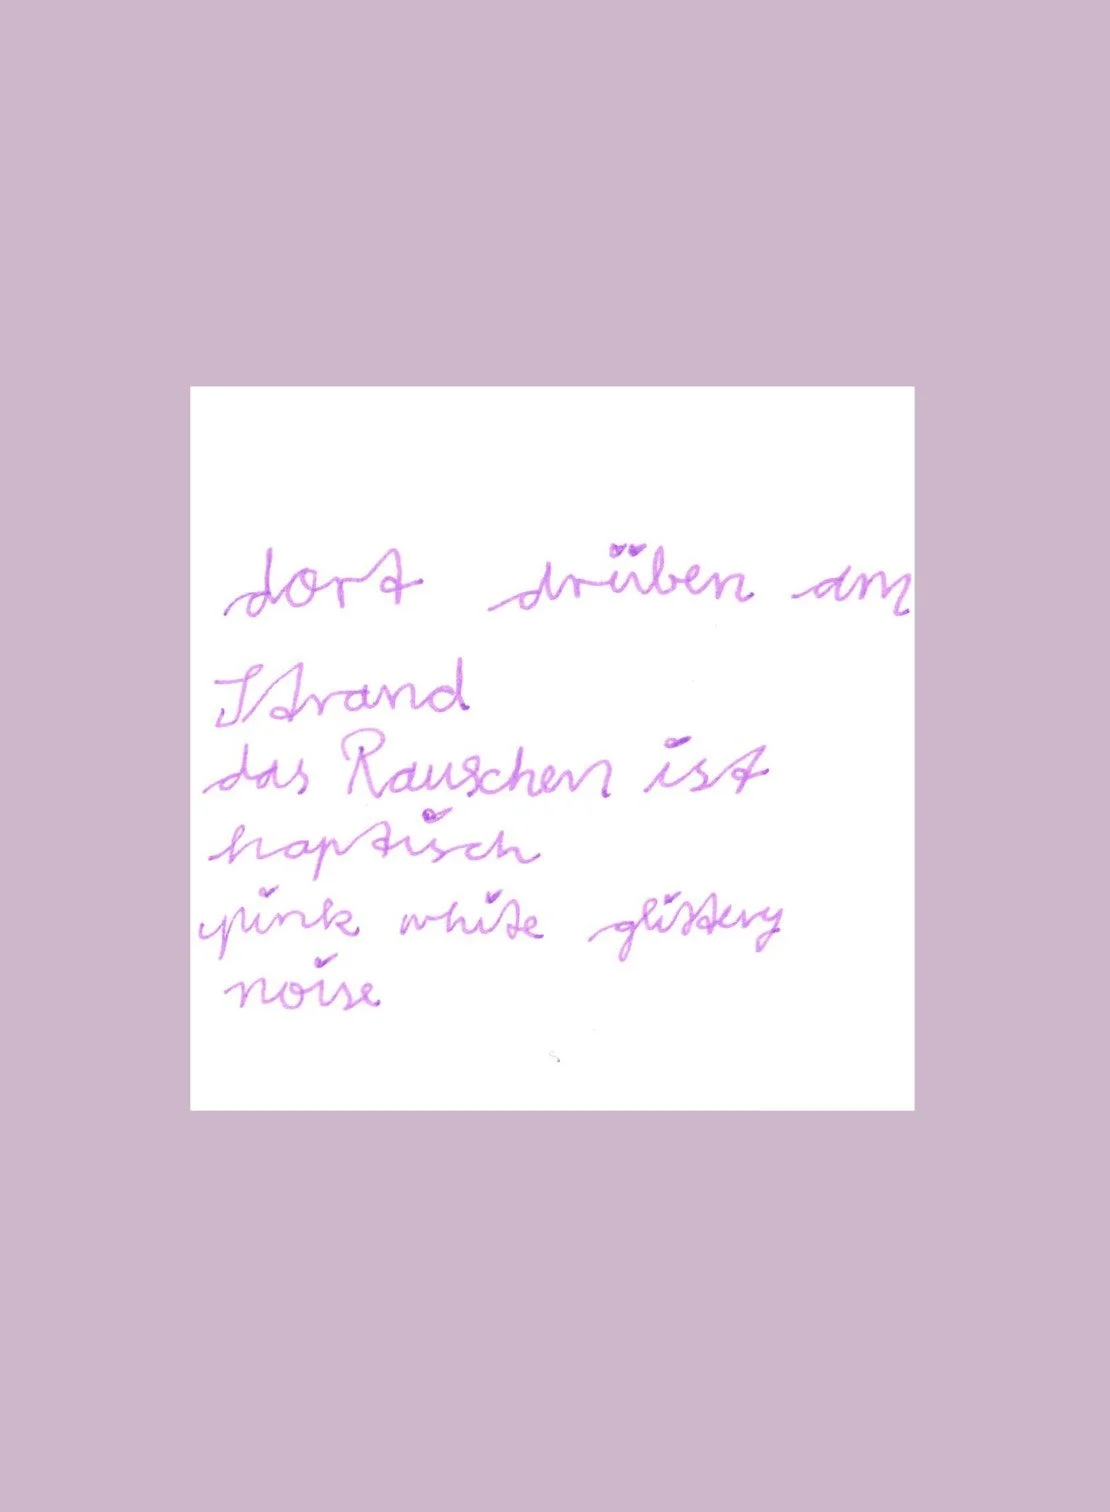 dort drüben am
Strand
das Rauschen ist
haptisch
pink white glittery
noise